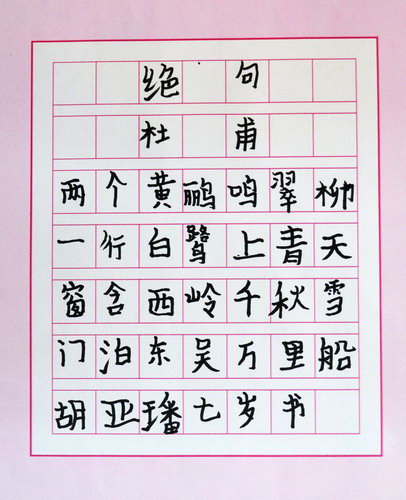 绝句
杜甫
两个黄鹂鸣翠柳
一行白鹭上青天
窗含西岭千秋雪
门泊东吴万里船
胡亚璠七岁书